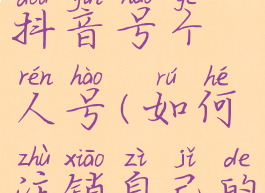 dǒu yīn hào gè
抖音号个
rén hào rú hé
人号(如何
zhù xiāo zì jǐ de
注销自己的